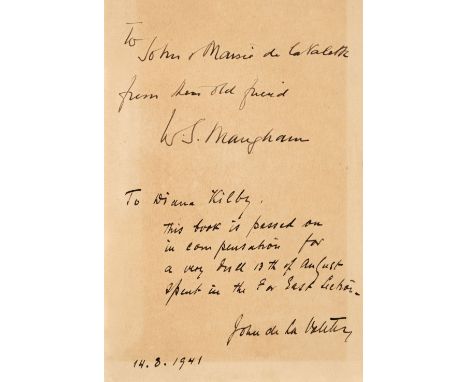 To
John & Marie de la Valette
from their old friend
W. S. Maugham
To Diana Kilby.
This book is passed on
in compensation for
a very dull 13th of August
spent in the Far East Section
John de La Valette
14.8.1941